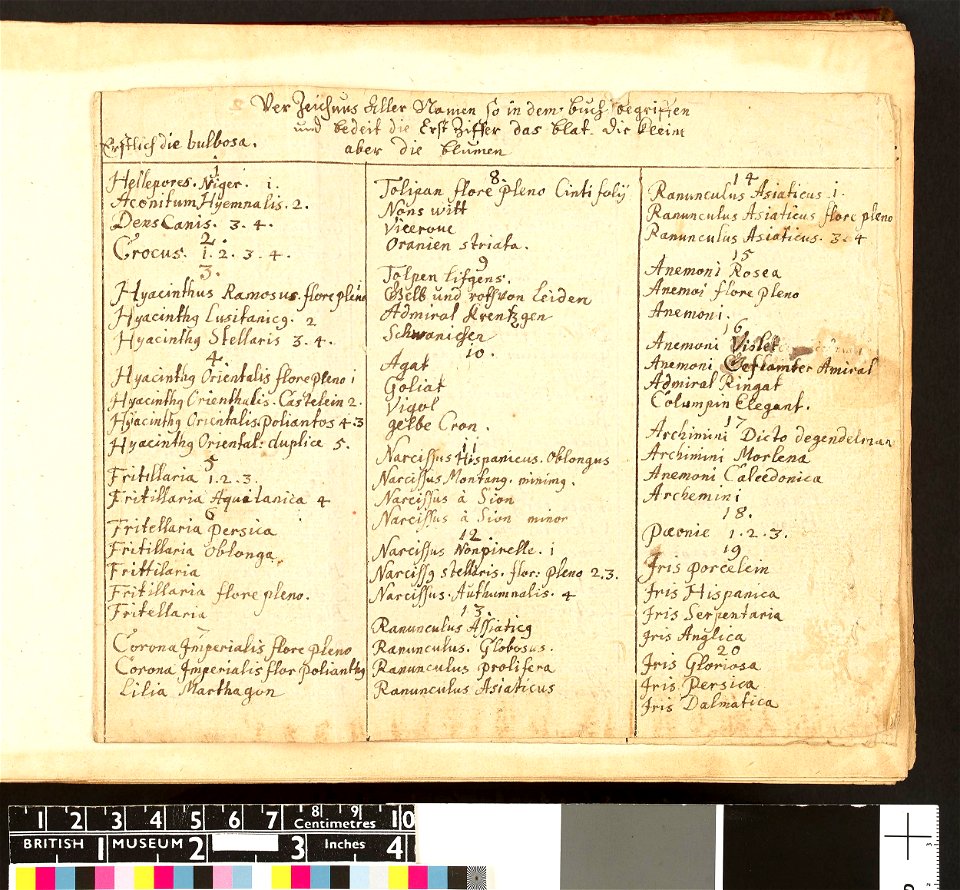 Verzeichnus Aller Namen so in dem buch begriffen
und bedeit die Erst Ziffer das blat. die kleine
aber die blumen
Erstlich die bulbosa.
1
Hellepores. Niger. i.
Aconitum Hyemnalis. 2.
Dens Canis. 3. 4.
2.
Crocus. 1. 2. 3. 4.
3.
Hyacinthus Ramosus. flore pleno i
Hyacinthg Lusitanicg. 2
Hyacinthg Stellaris 3. 4.
4.
Hyacinthg Orientalis flore pleno i
Hyacinthg Orienthalis. Castelein 2.
Hyacinthg Orientalis. poliantos 4. 3
Hyacinthg Oriental: duplice 5.
5
Fritillaria 1. 2. 3.
Fritillaria Aquitanica 4
6
Fritellaria Persica i
Fritillaria Oblonga
Frittilaria
Fritillaria flore pleno.
Fritellaria
7
Corona Imperialis flore pleno
Corona Imperialis flor polianthg
Lilia Marthagon
8
Tolipan flore pleno Cinti folij
Nons witt
Viceroue
Oranien striata.
9
Tolpen lifgens.
Gelb und roth von Leiden
Admiral Krentzgen
Schwanichen
10.
Agat
Goliat
Vigol
gelbe Cron.
11
Narcissus Hispanicus. Oblongus
Narcissus Montang. minimg.
Narcissus à Sion
Narcissus à Sion minor
12
Narcissus Nonpirelle. i
Narcissg stellaris. flor: pleno 2. 3.
Narcissus. Authumnalis. 4
13
Ranunculus Assiaticg
Ranunculus. Globosus.
Ranunculus prolifera
Ranunculus Asiaticus
14
Ranunculus Asiaticus. i.
Ranunculus Asiaticus flore pleno
Ranunculus Asiaticus. 3. 4
15
Anemoni Rosea
Anemoi flore pleno
Anemoni.
16
Anemoni Violet
Anemoni Amiral
Admiral Ringat
Columpin Elegant.
17
Archimini Dicto degendelman
Archimini Morlena
Anemoni Calcedonica
Archemini
18.
Pæonie 1. 2. 3.
19
Iris porcelein
Iris Hispanica
Iris Serpentaria
Iris Anglica
20
Iris Gloriosa
Iris Persica
Iris Dalmatica
1 2 3 4 5 6 7 8 9 10
Centimetres
BRITISH MUSEUM
1 2 3 4
Inches